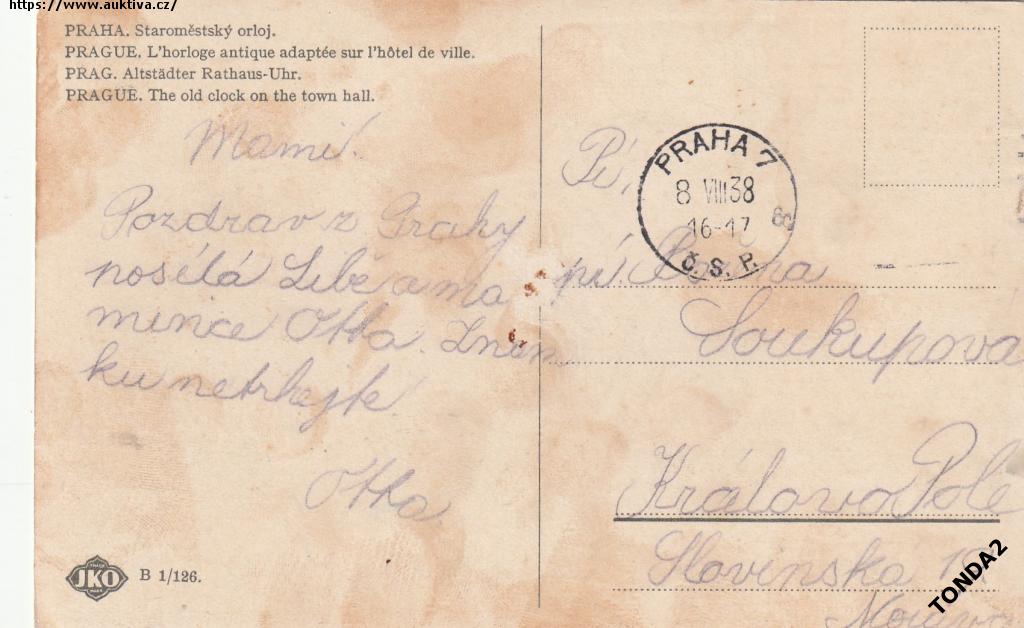 https://www.auktiva.cz/
PRAHA. Staroměstský orloj.
PRAGUE. L'horloge antique adaptée sur l'hôtel de ville.
PRAG. Altstädter Rathaus-Uhr.
PRAGUE. The old clock on the town hall.
Mami.
Pozdrav z Prahy
posílá Libě a ma
mince Otta. Znám
ku netrhejte.
Otta
JKO
B 1/126.
PRAHA 7
8 VIII 38
16-17
Č. S. P.
Pí,
pí.
Soukupová
Královo Pole
Slovinska
TONDA2